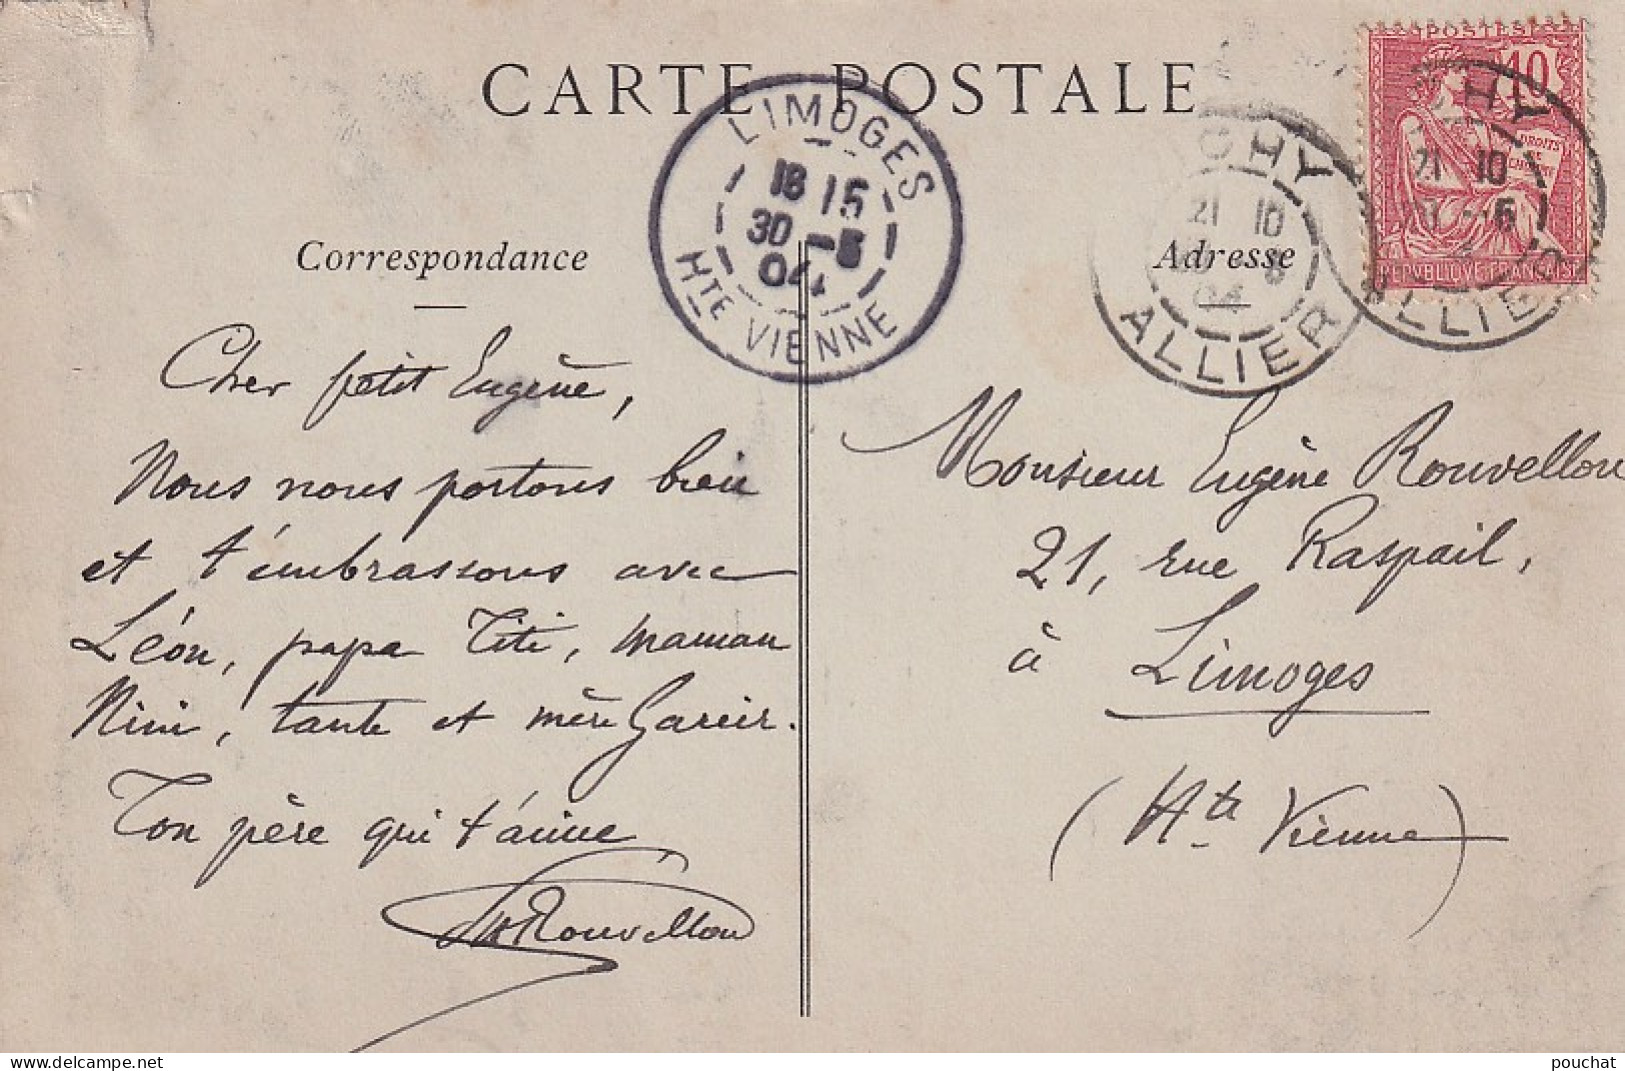 CARTE POSTALE
POSTES
10
DROITS
DE
REPVBLIQVE FRANÇAISE
LIMOGES
18 15
30 -5
04
Hte VIENNE
CHY
21 10
04
ALLIER
CHY
21 10
ALLIER
Correspondance
Cher petit Eugène,
Nous nous portons bien
et t'embrassons avec
Léon, papa Titi, maman
Nini, tante et mère Garcir.
Ton père qui t'aime
Rouvellou
Adresse
Monsieur Eugène Rouvellou
21, rue Raspail,
à Limoges
(Hte Vienne)
pouchat